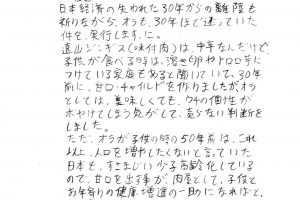 日本経済の失われた30年からの離陸も
祈りながら、オラも、30年ほど迷っていた
件を、実行します、に。
遠山ジンギス(味付肉)は、中辛なんだけど、
子供が食べる時は、溶き卵やトロロ芋に
つけている家庭もあると聞いていて、30年
前に、甘口・チャイルドを作りましたが、オラ
としては、美味しくても、ウチの個性が
ボヤけてしまう気がして、売らない判断を
しました。
ただ、オラが子供の時の50年前は、これ
以上、人口を増やしたくないと言っていた
日本も、すさまじい少子高齢化している
ので、甘口を出す事が、肉屋として、子供と
お年寄りの健康増進の一助になればと、